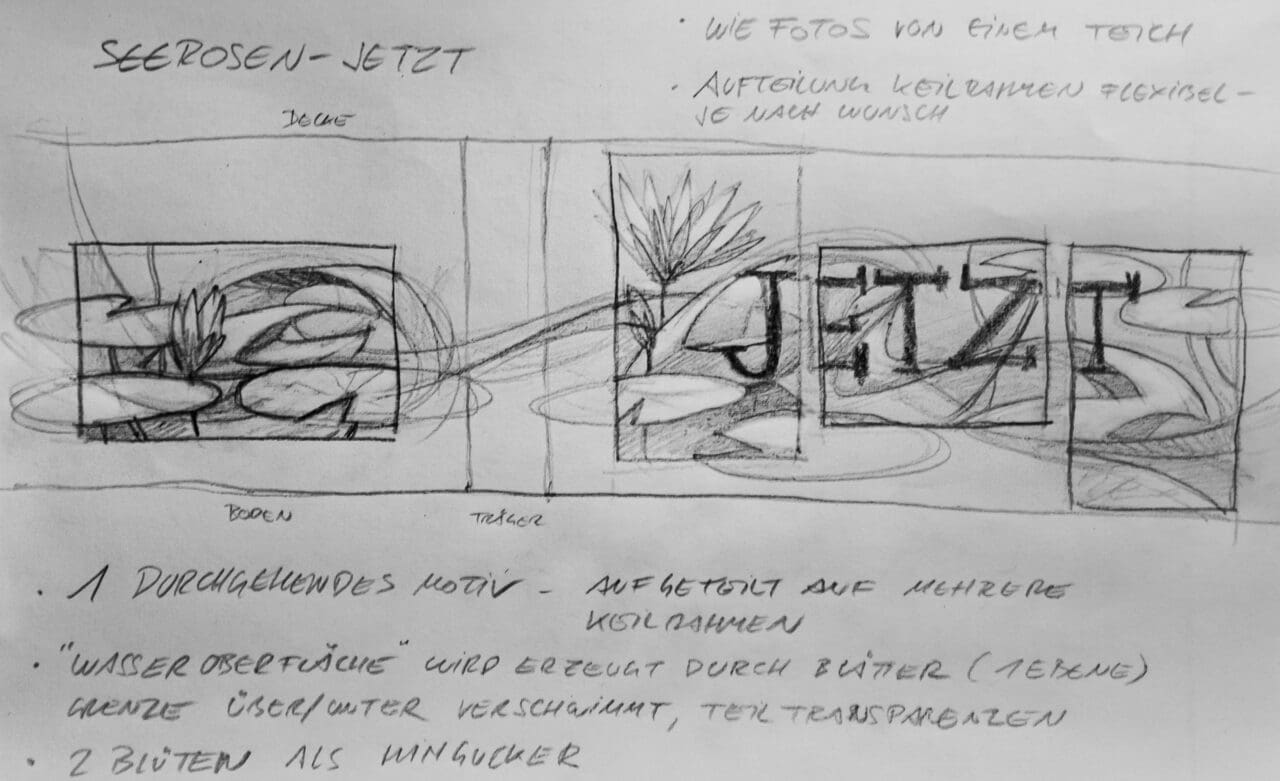 SEEROSEN-JETZT
• WIE FOTOS VON EINEM TEICH
• AUFTEILUNG KEILRAHMEN FLEXIBEL -
JE NACH WUNSCH
DECKE
JETZT
BODEN
TRÄGER
• 1 DURCHGEHENDES MOTIV - AUFGETEILT AUF MEHRERE
KEILRAHMEN
• "WASSEROBERFLÄCHE" WIRD ERZEUGT DURCH BLÄTTER (1 EBENE)
GRENZE ÜBER/UNTER VERSCHWIMMT, TEIL TRANSPARENZEN
• 2 BLÜTEN ALS HINGUCKER